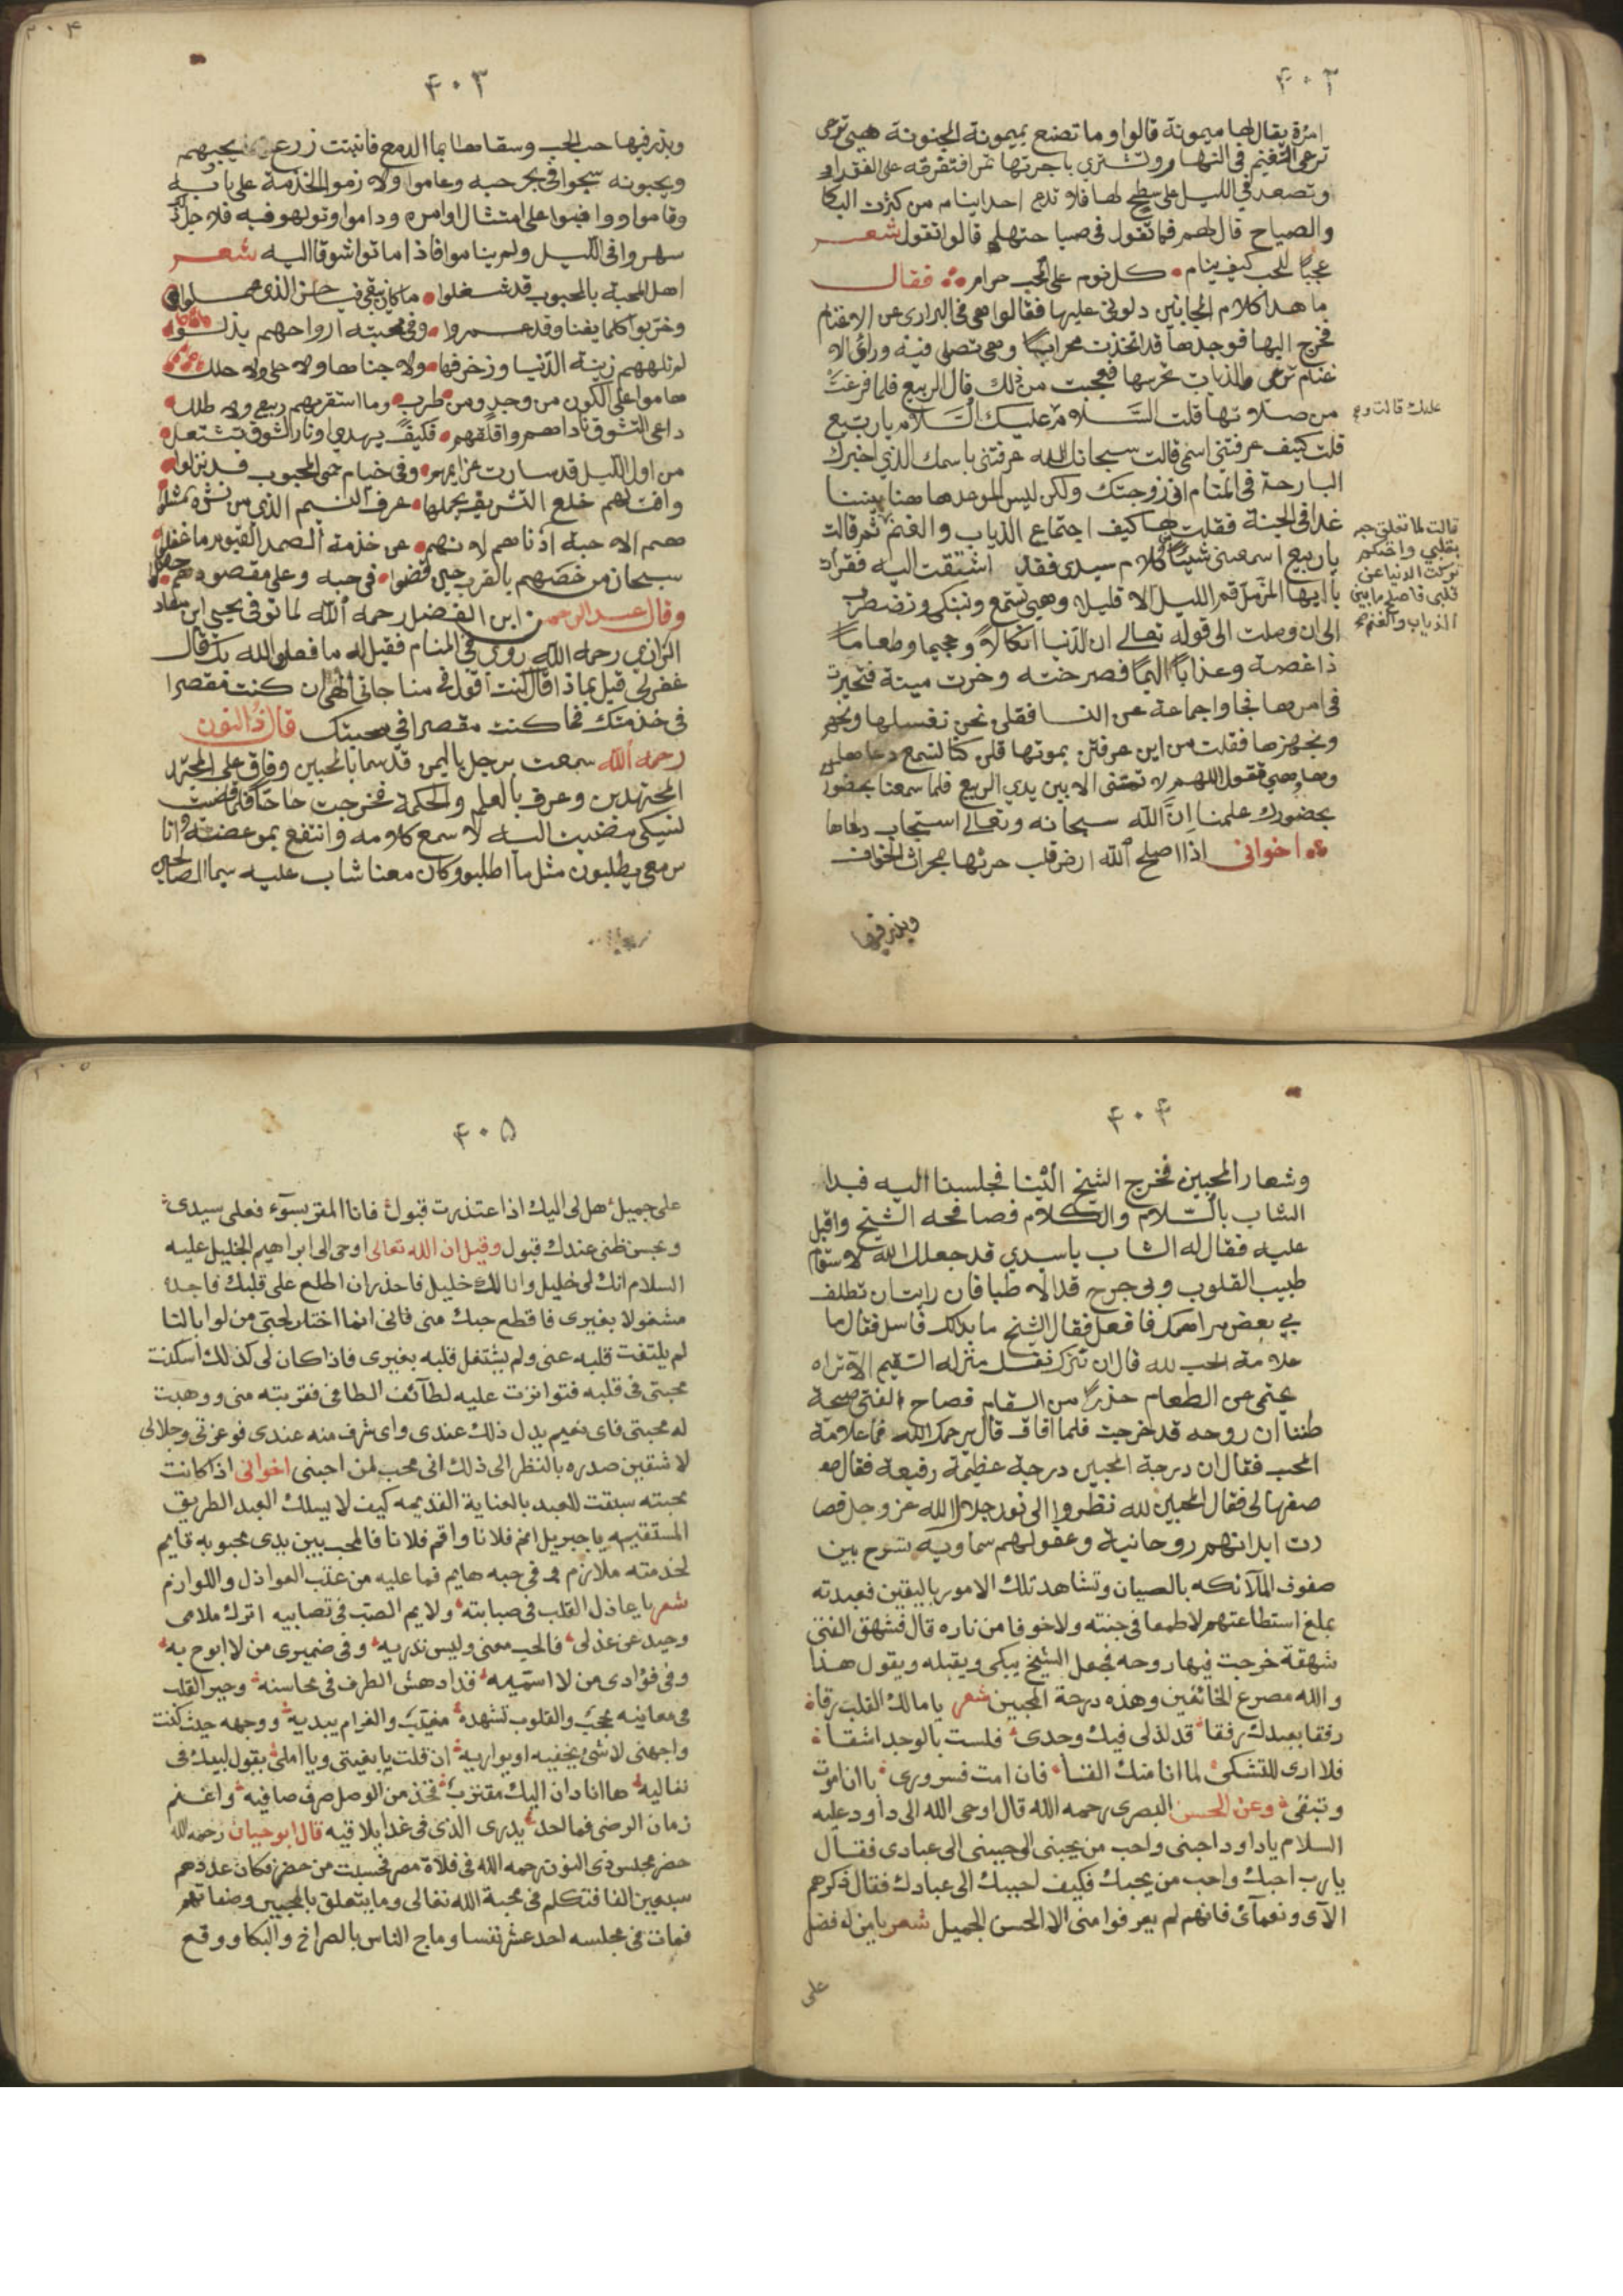 ٤٠٢
امرة يقال لها ميمونة قالوا وما تصنع بميمونة المجنونة هي ترعى
ترعى الغنم في النهار وتشتري باجرتها تمرا فتفرقه على الفقراء
وتصعد في الليل على سطح لها فلا تدع احدا ينام من كثرت البكا
والصياح قال لهم فما تقول في صياحها قالوا تقول شعر
عجبًا للمحب كيف ينام كل نوم على المحب حرام فقال
ما هذا كلام المجانين دلوني عليها فقالوا هي في البراري عن الاغنام
فخرج اليها فوجدها قد اتخذت محرابًا وهي تصلي فيه ورأى الا
غنام ترعى والذياب تحرسها فعجبت من ذلك قال الربيع فلما فرغت
من صلاوتها قلت السَّلام عليك السَّلام يا ربيع
عليك قالت و
قلت كيف عرفتني اسمي قالت سبحان الله عرفتني باسمك الذي اخبرك
البارحة في المنام اني زوجتك ولكن ليس الموعد ها هنا بيننا
غدا في الجنة فقلت لها كيف اجتماع الذياب والغنم ثم قالت
قالت لما تعلق حبه
بقلبي
تركت الدنيا عن
قلبي فاصلح ما بين
الذياب والغنم
يا ربيع اسمعني شيئًا كلام سيدي فقد اشتقت اليه فقرأت
يا ايها المزمل قم الليل الا قليلا وهي تستمع وتبكي وتضطرب
الى ان وصلت الى قوله تعالى ان لدنيا انكالا وجحيما وطعامًا
ذا غصة وعذابًا اليمًا فصرخت وخرت ميتة فتحيرت
في امرها فجاوا جماعة من النسا فقلن نحن نغسلها
ونجهزها فقلت من اين عرفتن بموتها قلن كنا نسمع دعاها
وهي تقول اللهم لا تمتني الا بين يدي الربيع فلما سمعنا بحضور
بحضورك علمنا اِنَّ الله سبحانه وتعالى استجاب دعاها
اخواني اذا اصلح الله ارض قلب حرثها بمحراث الخوف
وبذر فيها
٤٠٣
وبذر فيها حب الحب وسقاها بما الدمع فانبتت زرع يحبهم
ويحبونه سبحوا في بحر حبه وعاموا ولازموا الخدمة على بابه
وقاموا ووافبوا على امتثال اوامره وداموا وتولهو فيه
سهروا في الليل ولم يناموا فاذا ماتوا اشوقا اليه شعر
اهل المحبة بالمحبوب قد شغلوا
وخربوا كلما يفنا وقد عمروا وفي محبته ارواحهم بذلوا
لم تلههم زينة الدنيا وزخرفها ولا جناها ولا حلي ولا حلل
هاموا على الكون من وجد ومن طرب وما استقر بهم ربع ولا طلل
داعي التشوق ناداهم واقلقهم فكيف يهدي ونار الشوق تشتعل
من اول الليل قد سارت عزايمهم وفي خيام حمى المحبوب قد نزلوا
وافت لهم خلع التشريف يحملها عرف النسيم الذي من نشره ثملوا
هم الاحبة ادناهم لانهم عن خدمة الصمد القيوم ما غفلوا
سبحان من خصهم بالقرب حين قضوا في حبه وعلى مقصودهم حصلوا
وقال عبد الرحمن ابن الفضل رحمه الله لما توفي يحيى ابن معاذ
الرازي رحمه الله روى في المنام فقيل له ما فعل الله بك قال
غفر لي قيل بماذا قال كنت اقول في مناجاتي الهي ان كنت مقصرا
في خذمتك فما كنت مقصرا في محبتك قال ذا النون
رحمه الله سمعت برجل باليمن قد سما بالمحبين وفاق على
المجتهدين وعرف بالعلم والحكمة فخرجت حاجا فلما قضيت
نسكي مضيت اليه لاسمع كلامه وانتفع بموعضته وانا
من معي يطلبون مثل ما اطلبو وكان معنا شاب عليه سيما الصالحين
٤٠٤
وشعار المحبين فخرج الشيخ الثنا فجلسنا اليه فبدا
الشاب بالسّلام والكلام فصافحه الشيخ واقبل
عليه فقال له الشاب يا سيدي قد جعلك الله لاسقام
طبيب القلوب وبي جرح قد الاطبا فان رايت ان تطلف
بي بعض مراهمك فافعل فقال الشيخ ما بدا لك فاسل فقال ما
علامة الحب لله قال ان تترك نفسك منزله السقيم الا تراه
يحتمي من الطعام حذرًا من السقام فصاح الفتى صيحة
ظننا ان روحه قد خرجت فلما افاق قال يرحمك الله فما علامة
المحب فقال ان درجة المحبين درجة عظيمة رفيعة فقال
صفها لي فقال المحبين لله نظروا الى نور جلال الله عز وجل فصا
رت ابدانهم روحانية وعقولهم سماوية تسرح بين
صفوف الملآئكه بالعيان وتشاهد تلك الامور باليقين فعبدته
بملغ استطاعتهم لا طمعا في جنته ولا خوفا من ناره قال فشهق الفتى
شهقة خرجت فيها روحه فجعل الشيخ يبكي ويقبله ويقول هذا
والله مصرع الخائفين وهذه درجة المحبين شعر يا مالك القلب رقاه
رفقا بعبدك رفقا قد لذ لي فيك وحدي فلست بالوجد اشقاه
فلا ارى للتشكي لما انا منك الفنا فان امت فسروري يا انا موت
وتبقى وعن الحسن البصري رحمه الله قال اوحى الله الى داود عليه
السلام يا داود احبني واحب من يحبني الى حببني الى عبادي فقال
يا رب احبك واحب من يحبك فكيف احببك الى عبادك فقال ذكرهم
الآي ونعمآئ فانهم لم يعرفوا مني الا الحسن الجميل شعر يا من له فضل
على
٤٠٥
على جميل هل لي اليك اذا عتذرت قبول فانا المقر بسوء فعلي سيدي
وبحسن ظني عندك قبول وقيل ان الله تعالى اوحى الى ابراهيم الخليل عليه
السلام انك لي خليل وانا لك خليل فاحذر ان اطلع على قلبك فاجده
مشغولا بغيري فاقطع حبك مني فاني انما اختار لحبتي من لوابالنا
لم يلتفت قلبه عني ولم يشتغل قلبه بغيري فاذا كان لي كذلك اسكنت
محبتي في قلبه فتوانزت عليه لطآئف الطافي فقربته مني ووهبت
له محبتي فاي نعيم يدل ذلك عندي واي شرف منه عندي فو عزتي وجلالي
لاشقين صدره بالنظر الى ذلك اني محب لمن احبني اخواني اذا كانت
محبته سبقت للعبد بالعناية القديمه كيف لا يسلك العبد الطريق
المستقيم يا جبريل انم فلانا واقم فلانا فالمحب بين يدي محبوبه قايم
لخدمته ملازم وفي حبه هايم فما عليه من عتب العواذل واللوارم
شعر يا عاذل القلب في صبابته ولايم الصب في تصابيه اترك ملامي
وحيد عن عذلي فالحب معنى وليس ندريه وفي ضميري من لا ابوح به
وفي فؤادي من لا اسميه قد ادهش الطرف في محاسنه وحير القلب
في معانيه محجب والقلوب تشهده مغيب والغرام يبديه ووجهه حيث كنت
واجهني لا شئ يخفيه او يواريه ان قلت يا بغيتي ويا املي يقول لبيك في
تعاليه ها انا دان اليك مقترب فخذ من الوصل صرف صافيه واغنم
زمان الرضى فما احد يدري الذي في غدا يلاقيه قال ابو حيان رحمه الله
حضر مجلس ذي النون رحمه الله في فلاة مصر فحسبت من حضر فكان عددهم
سبعين الفا فتكلم في محبة الله تعالى وما يتعلق بالمحبين وصفاتهم
فمات في مجلسه احد عشر نفسا وماج الناس بالصراخ والبكا ووقع